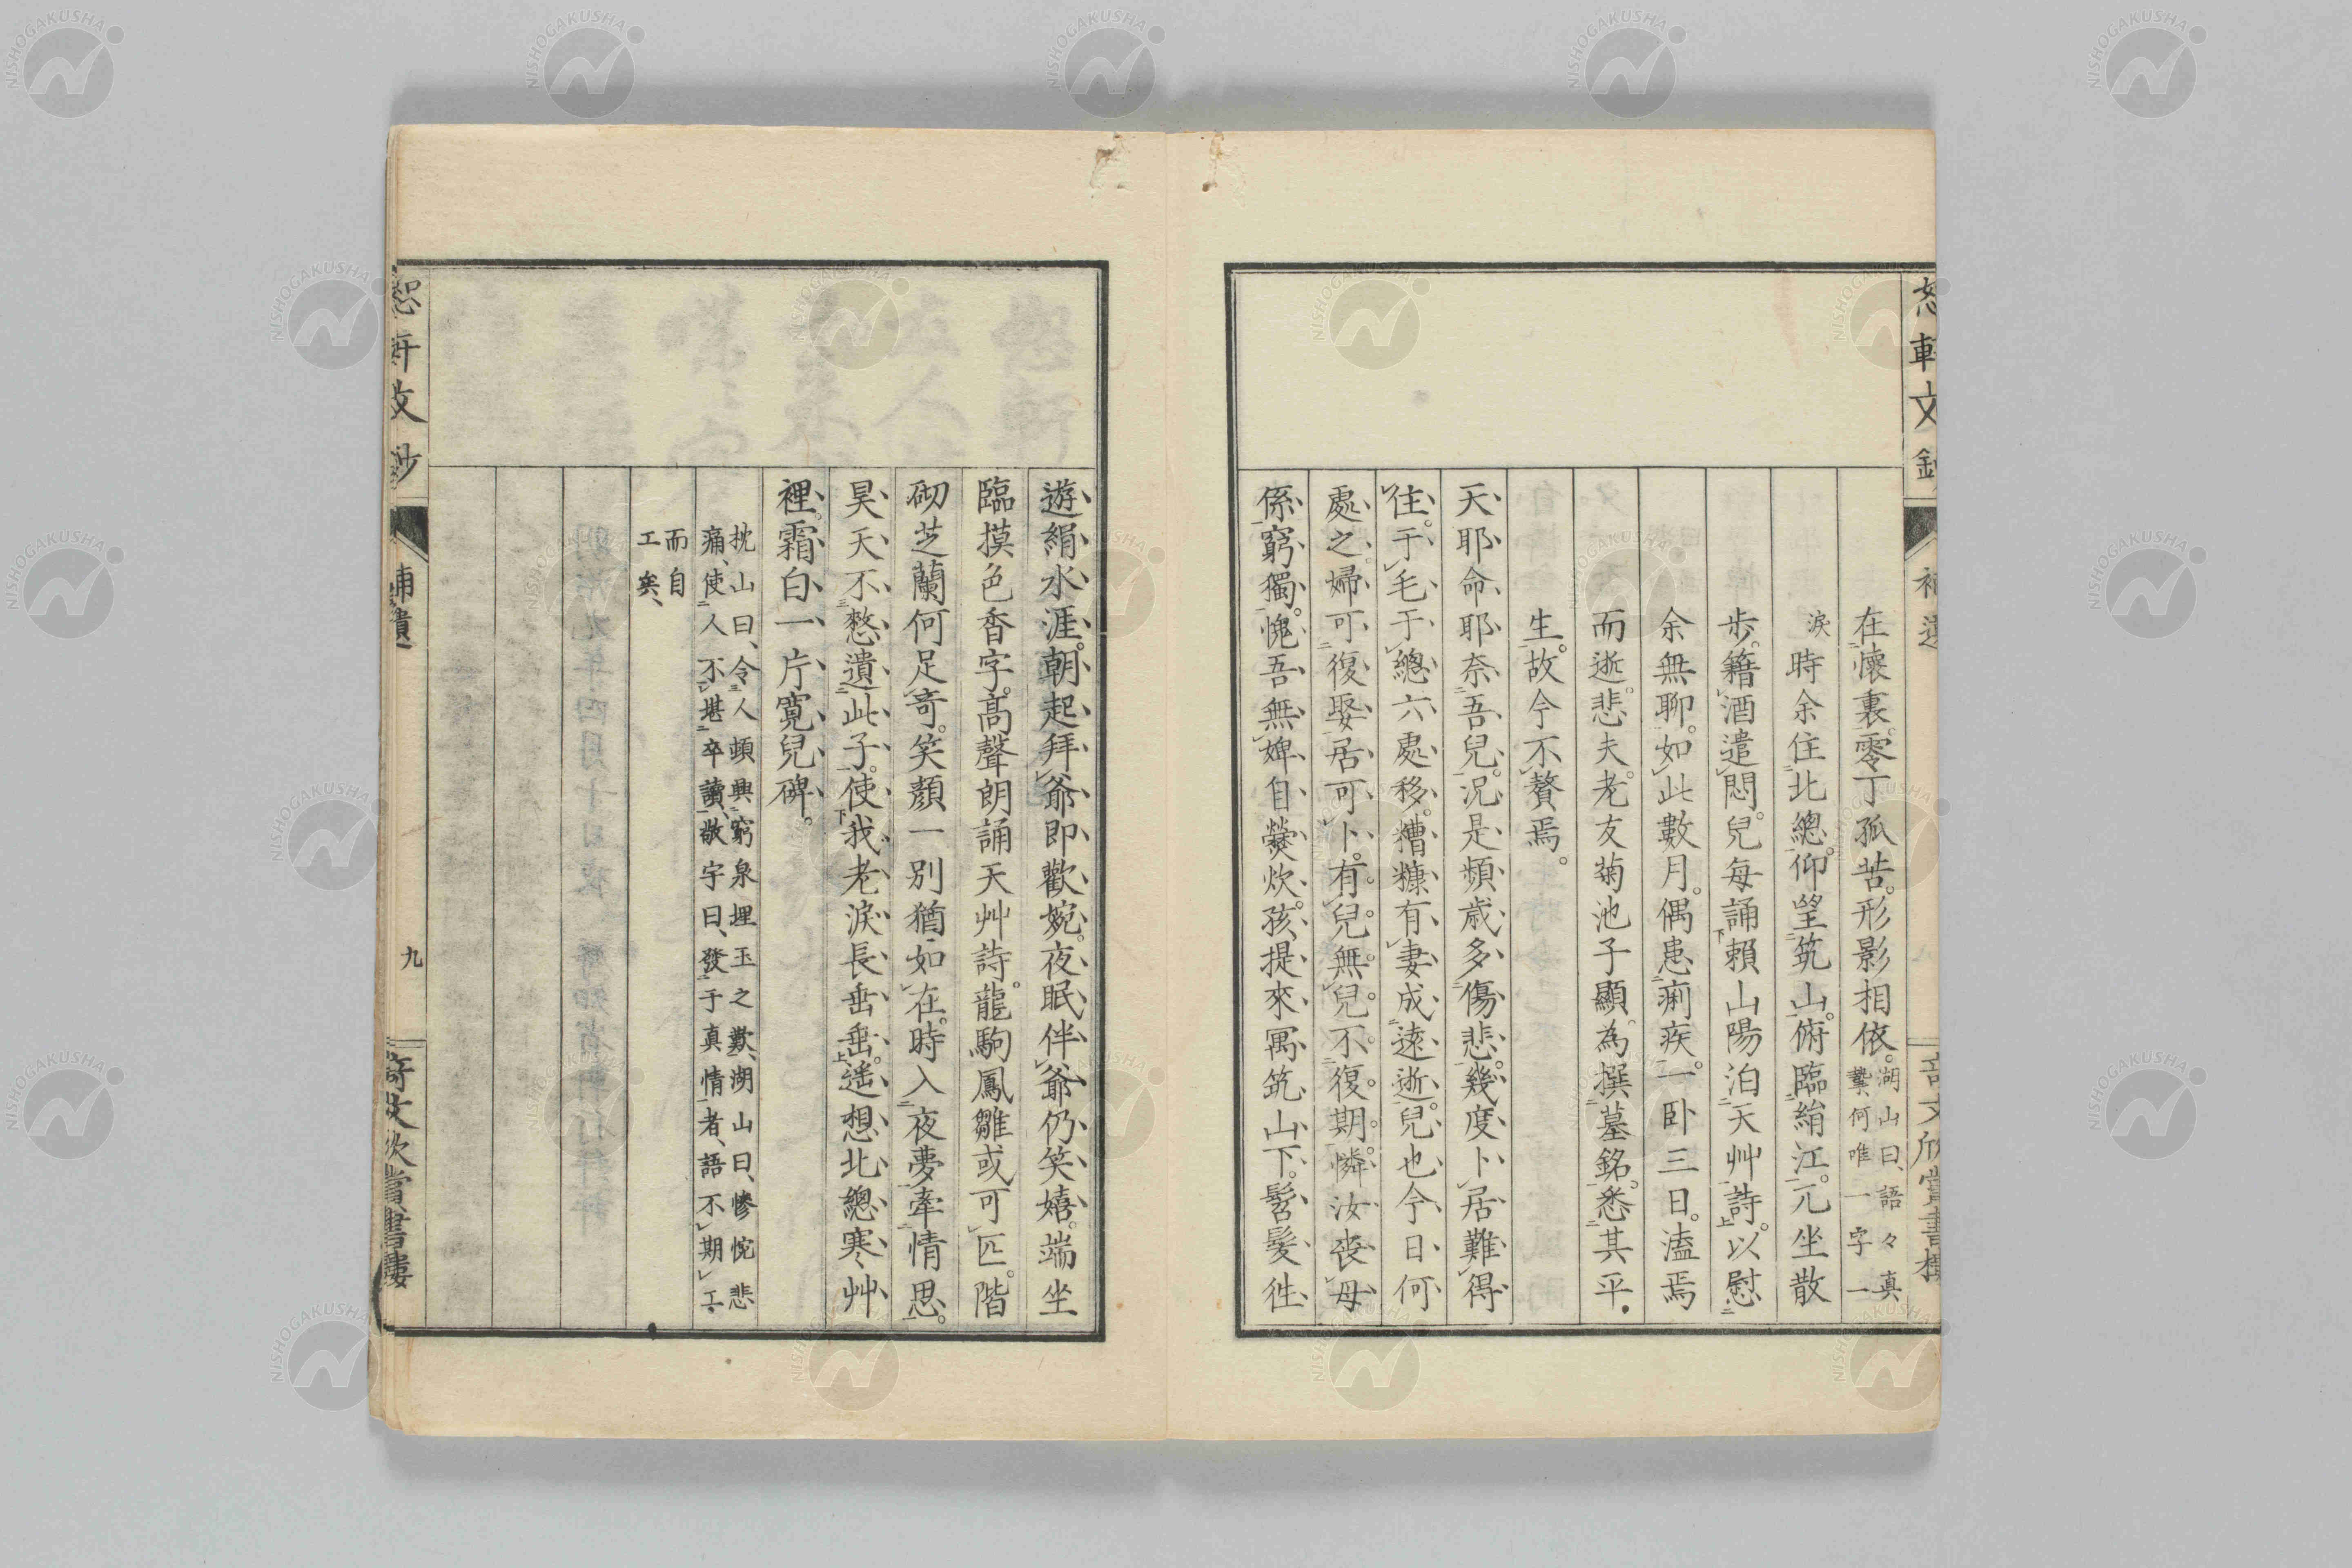 恕軒文鈔 補遺 奇文欣賞書樓
在懷裏。零丁孤苦。形影相依。湖山曰、語々真摯、何唯一字一
淚 時余住北總。仰望筑山。俯臨絹江。兀坐散
步。籍酒遣悶。兒每誦賴山陽泊天艸詩。以慰
余無聊。如此數月。偶患痢疾。一臥三日。溘焉
而逝。悲夫。老友菊池子顯。為撰墓銘。悉其平
生。故今不贅焉。
天耶命耶奈吾兒。況是頻歲多傷悲。幾度卜居難得
住。于毛于總六處移。糟糠有妻成遠逝。兒也今日何
處之。婦可復娶居可卜。有兒無兒不復期。憐汝喪母
係窮獨。愧吾無婢自爨炊。孩提來寓筑山下。髫髮往
遊絹水涯。朝起拜爺即歡婉。夜眠伴爺仍笑嬉。端坐
臨摸色香字。高聲朗誦天艸詩。龍駒鳳雛或可匹。階
砌芝蘭何足奇。笑顏一別猶如在。時入夜夢牽情思。
昊天不憗遺此子。使我老淚長垂垂。遙想北總寒艸
裡。霜白一片寬兒碑。
枕山曰、令人頓興窮泉埋玉之歎、湖山曰、慘惋悲
痛、使人不堪卒讀、敬宇曰、發于真情者、語不期工
而自
工矣、
恕軒文鈔 補遺 九 奇文欣賞書樓